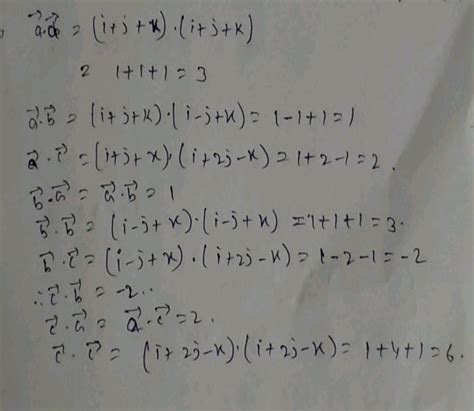 a⃗.a⃗ = (i+j+k).(i+j+k)
= 1+1+1 = 3
a⃗.b⃗ = (i+j+k).(i-j+k) = 1-1+1=1
a⃗.c⃗ = (i+j+k).(i+2j-k) = 1+2-1=2.
b⃗.a⃗ = a⃗.b⃗ = 1
b⃗.b⃗ = (i-j+k).(i-j+k) = 1+1+1=3.
b⃗.c⃗ = (i-j+k).(i+2j-k) = 1-2-1=-2
∴ c⃗.b⃗ = -2..
c⃗.a⃗ = a⃗.c⃗ = 2.
c⃗.c⃗ = (i+2j-k).(i+2j-k) = 1+4+1=6.